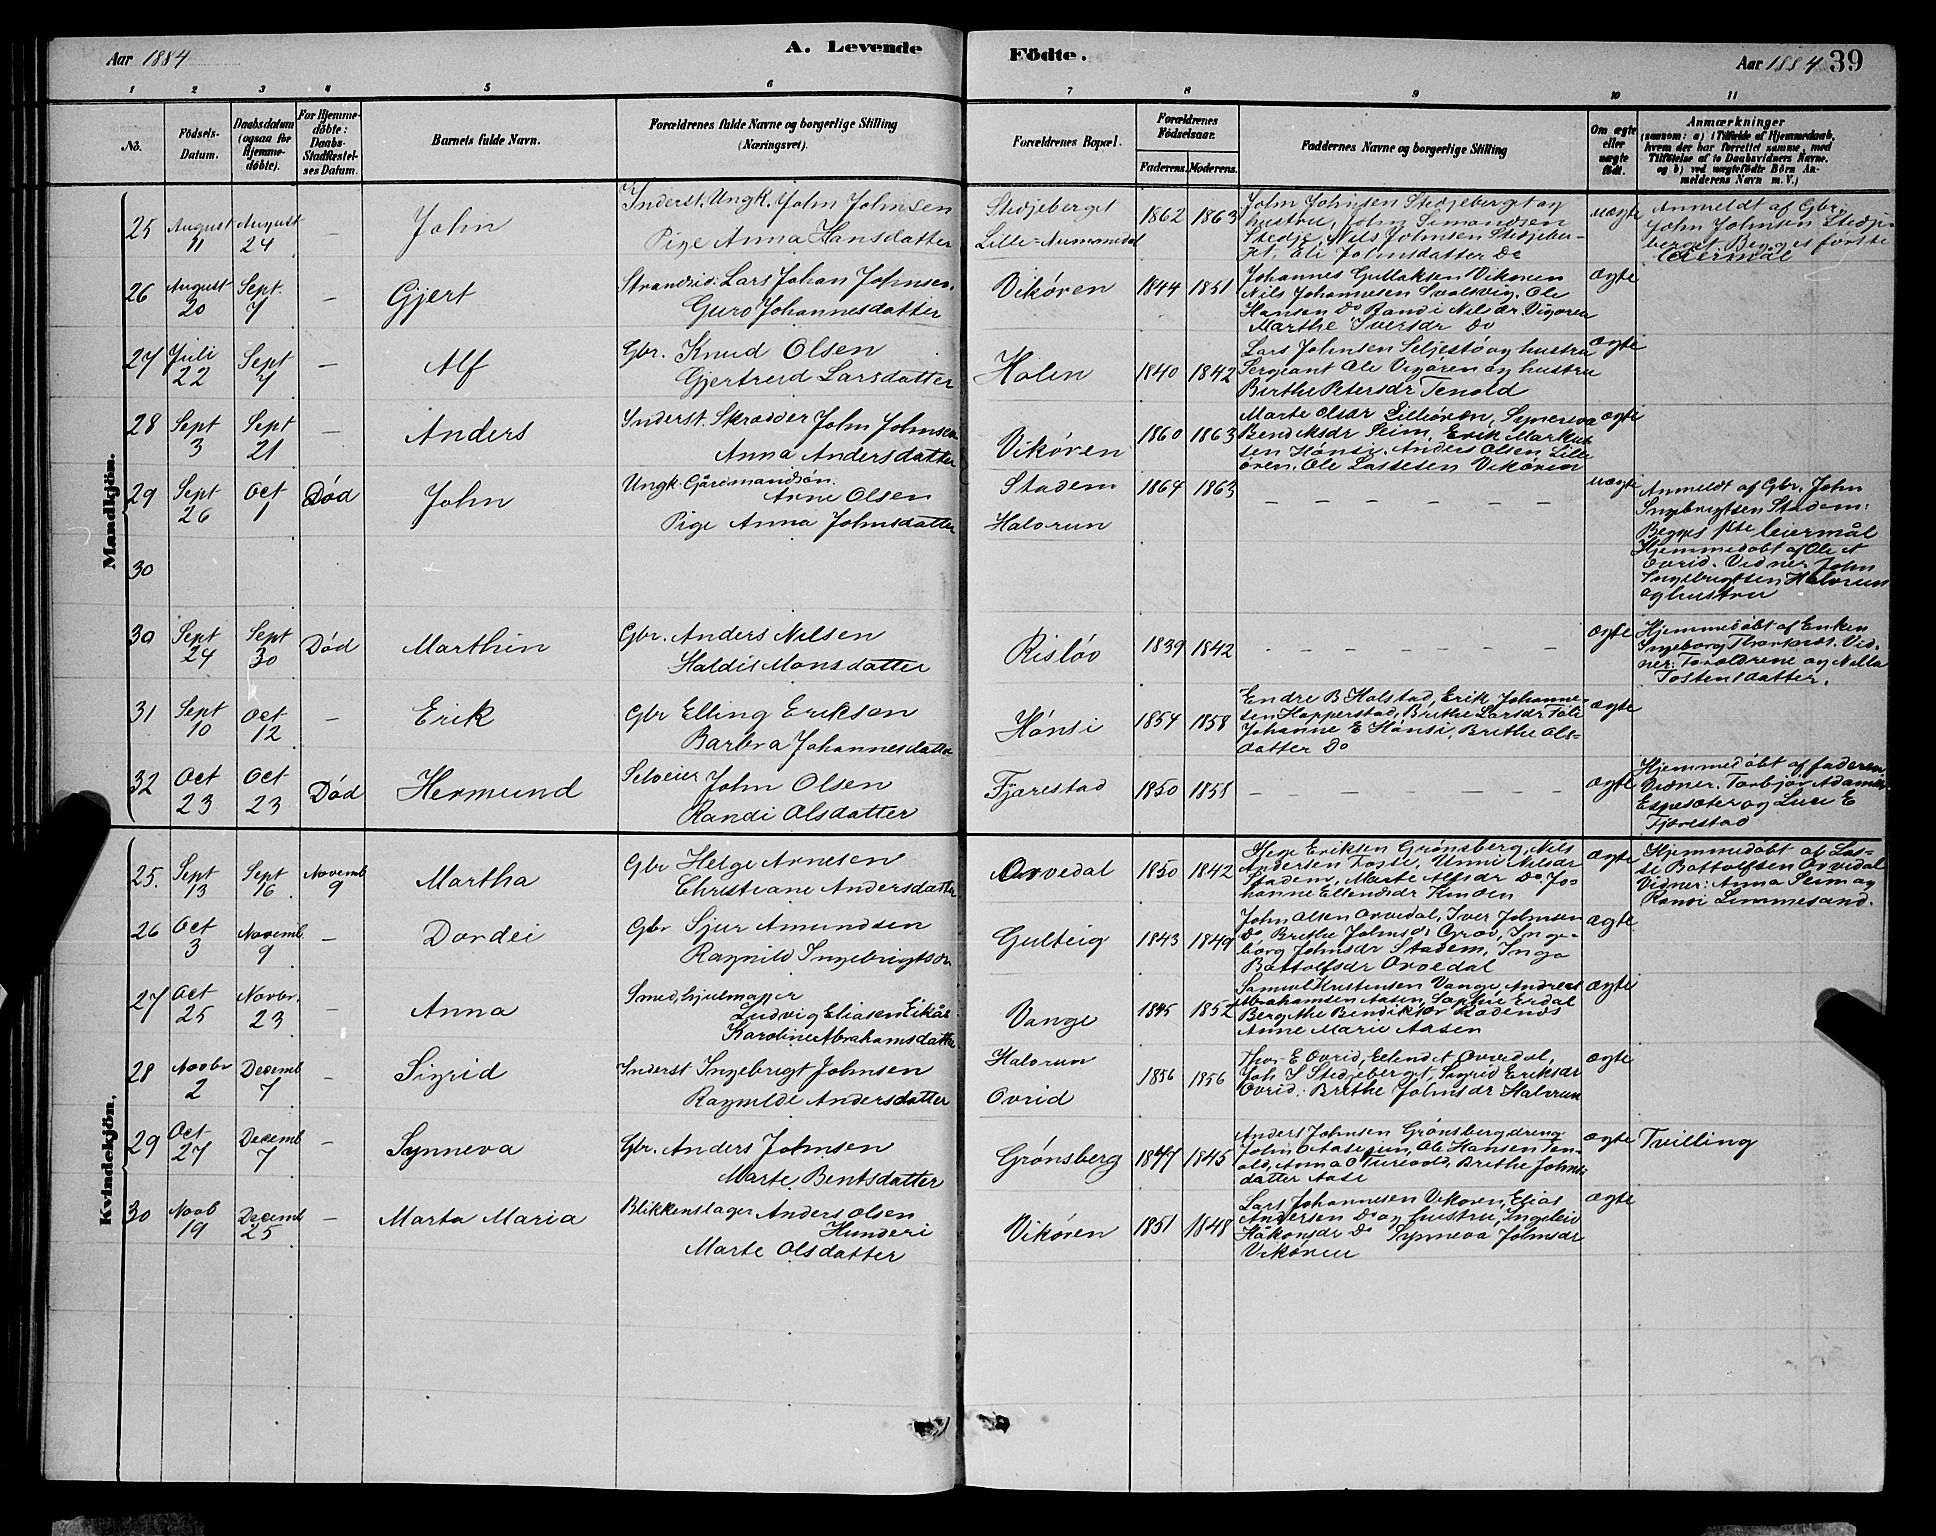 Aar 1884
A. Levende
Födte.
Aar 1884 39
1 2 3 4 5 6 7 8 9 10 11
No.
Födsels-Datum.
Daabsdatum (ogsaa for Hjemmedöbte).
For Hjemmedöbte: Daabs-Stadfæstelses Datum.
Barnets fulde Navn.
Forældrenes fulde Navne og borgerlige Stilling (Næringsvei).
Forældrenes Bopæl.
Forældrenes Födselsaar.
Faderens. Moderens.
Faddernes Navne og borgerlige Stilling
Om ægte eller uægte födt.
Anmærkninger
(saasom: a) i Tilfælde af Hjemmedaab, hvem der har forrettet samme, med Tilföielse af to Daabsvidners Navne, og b) ved uægtefödte Börn Anmelderens Navn m. V.)
Mandkjön.
25 August 11 August 24 – John
Inderst. Ungk. John Johnsen
Pige Anna Hansdatter
Stedjeberget
Lille-Aummedal
1862 1863
John Johnsen Stedjeberget og
hustru, John Simondsen
Stedje, Nils Johnsen Stedjeber-
get, Eli Johnsdatter Do
uægte
Anmeldt af Gbr.
John Johnsen Stedje-
berget. Begges første
leiermål
26 August 20 Sept. 7 – Gjert
Strandsid. Lars Johan Johnsen.
Guro Johannesdatter
Vikøren 1844 1851
Johannes Gullaksen Vikøren
Nils Johannesen Svolsvig. Ole
Hansen Do Randi Nilsdr. Vigøren
Marthe Iversdr Do
ægte
27 Juli 22 Sept 7 – Alf
Gbr. Knud Olsen
Gjertrud Larsdatter
Holen 1840 1842
Lars Johnsen Seljestø og hustru
Sergeant Ole Vigøren og hustru
Birthe Petersdr Tenold
ægte
28 Sept 3 Sept 21 – Anders
Inderst. Skrædder John Johnsen
Anna Andersdatter
Vikøren 1860 1863
Marte Olsdr Lilleøren, Synneva
Bendiksdr Seim, Erik Markus-
sen Hønsi. Anders Olsen Lille
øren. Ole Lassesen Vikøren
ægte
29 Sept 26 Oct 1 Død John
Ungk. Gårdmandsøn.
Arne Olsen
Pige Anna Johnsdatter
Stadem
Halvrun
1864 1863
– – – – – – –
uægte
Anmeldt af Gbr. John
Ingebrigtsen Stadem:
Begges 1ste leiermål
Hjemmedøbt af Ole A
Ovrid. Vidner John
Ingebrigtsen Halvrun
og hustru
30
30 Sept 24 Sept 30 Død Marthin
Gbr. Anders Nilsen
Haldis Monsdatter
Risløv 1839 1842
– – – – – – –
ægte
Hjemmedøbt af Enken
Ingeborg Thorkildr. Vid-
ner: Forældrene og Nilla
Tostensdatter.
31 Sept 10 Oct 12 – Erik
Gbr Elling Eriksen
Barbra Johannesdatter
Hønsi 1854 1858
Endre B Holstad, Erik Johanne-
sen Hopperstad, Brithe Larsdr Føli
Johanne E Hønsi, Brithe Ols-
datter Do
ægte
32 Oct 23 Oct 23 Død Hermund
Selveier John Olsen
Randi Olsdatter
Fjærestad 1850 1858
– – – – – – –
ægte
Hjemmedøbt af faderen
Vidner. Torbjør Adamsdr
Espesæter og Luci E
Fjærestad
Kvindekjön.
25. Sept 13 Sept 16 Novemb 9 Martha
Gbr Helge Arnesen
Christiane Andersdatter
Orvedal 1850 1842
Hege Eriksen Grønsberg, Nils
Andersen Tosse, Unni Nilsdr
Stadem, Marte Alfsdr Do Jo-
hanne Ellendsdr Kinden
ægte
Hjemmedøbt af Las-
se Bottolfsen Orvedal
Vidner: Anna Seim og
Randi Limmesand.
26 Oct 3 Novemb 9 – Dordei
Gbr Sjur Amundsen
Ragnild Ingebrigtsdr
Gulteig 1843 1849
John Olsen Orvedal, Iver Johnsen
Do Brithe Johnsd. Grov, Inge-
borg Johnsdr Stadem, Inga
Bottolfsdr Orvedal
ægte
27 Oct 25 Novbr. 23 – Anna
Smed, hjulmager
Ludvig Eliasen Eikås
Karoline Abrahamsdatter
Vange 1845 1852
Samuel Kristensen Vange, Andreas
Abrahamsen Aasen, Sophie Erdal
Bergithe Bendiktsdr Rødends
Anne Marie Aasen
ægte
28 Novbr 2 Decemb 7 – Sigrid
Inderst Ingebrigt Johnsen
Ragnilde Andersdatter
Halvrun
Ovrid
1856 1856
Thor E Ovrid, Ellend A Orvedal,
Joh S Stedjeberget, Sigrid Eriksdr
Ovrid. Brithe Johnsdr Halvrun
ægte
29 Oct 27 Decemb 7 – Synneva
Gbr. Anders Johnsen
Marte Bentsdatter
Grønsberg 1847 1845
Anders Johnsen Grønsberg dreng
John O Aasegun, Ole Hansen Ten-
old, Anna O Turvold, Brithe Johns-
datter Aase
ægte
Tvilling
30 Novb 19 Decemb 25 – Marta Maria
Blikkenslager Anders Olsen
Hunderi
Marte Olsdatter
Vikøren 1851 1848
Lars Johannesen Vikøren, Elias
Andersen Do og hustru, Ingeleiv
Håkonsdr Do Synneva Johnsdr
Vikøren
ægte